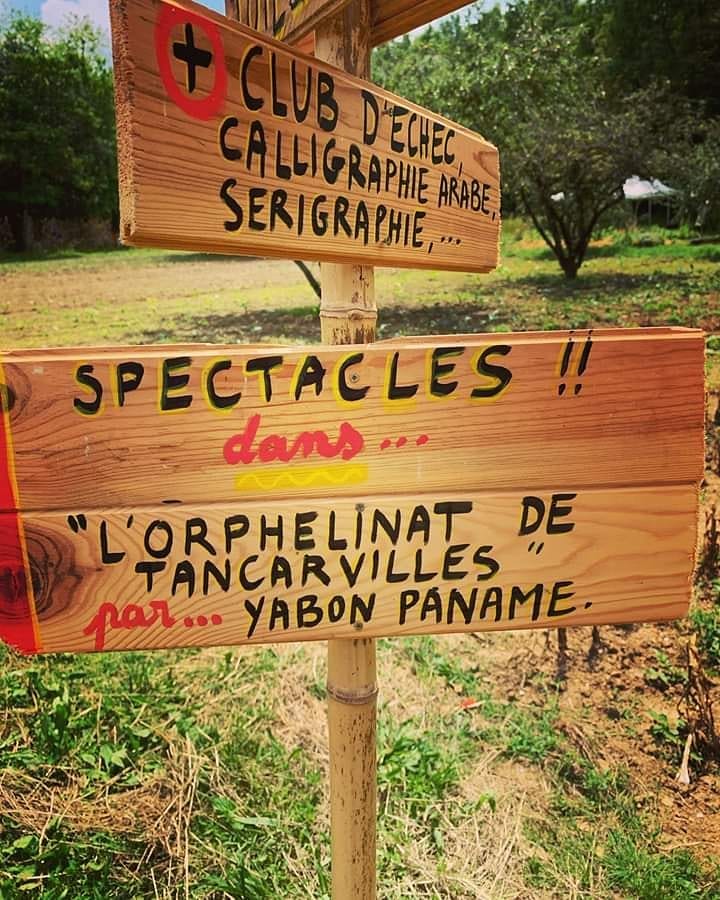 + CLUB D'ECHEC,
CALLIGRAPHIE ARABE,
SERIGRAPHIE,...
SPECTACLES !!
dans...
"L'ORPHELINAT DE
TANCARVILLES"
par... YABON PANAME.